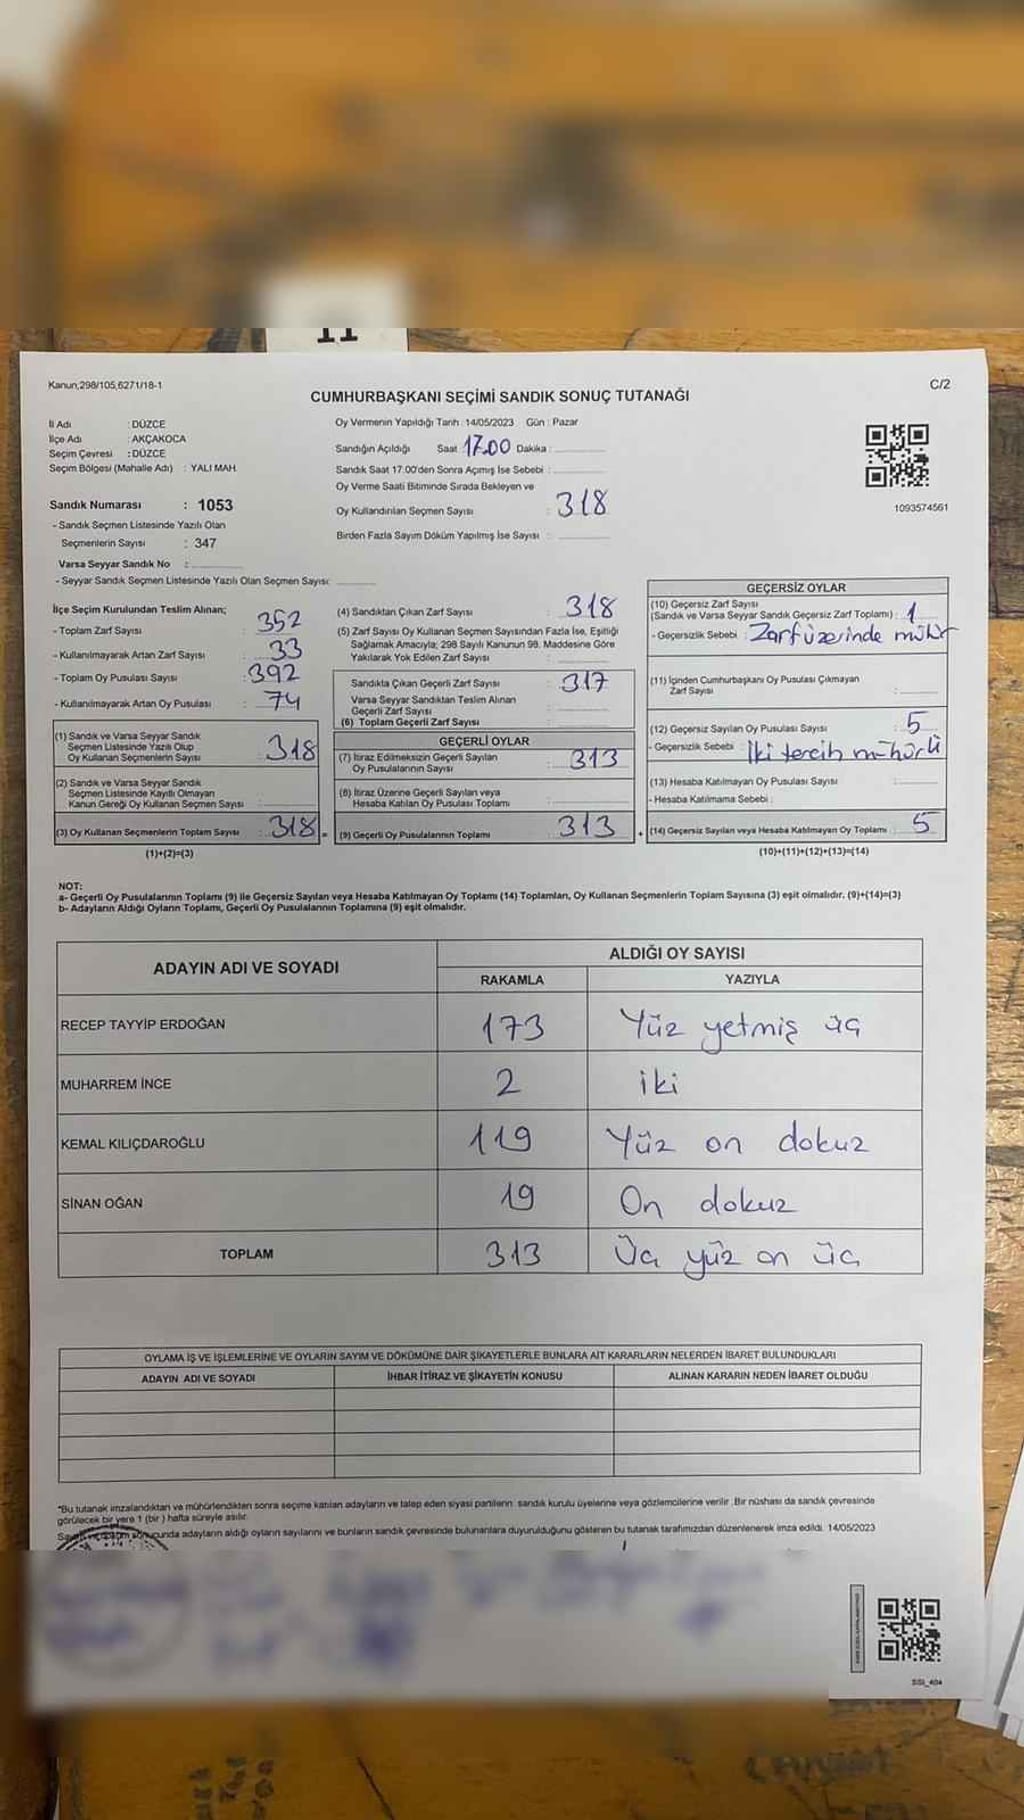 11
Kanun;298/105,6271/18-1
C/2
CUMHURBAŞKANI SEÇİMİ SANDIK SONUÇ TUTANAĞI
İl Adı : DÜZCE
İlçe Adı : AKÇAKOCA
Seçim Çevresi : DÜZCE
Seçim Bölgesi (Mahalle Adı) : YALI MAH.
Sandık Numarası : 1053
- Sandık Seçmen Listesinde Yazılı Olan
Seçmenlerin Sayısı : 347
Varsa Seyyar Sandık No :
- Seyyar Sandık Seçmen Listesinde Yazılı Olan Seçmen Sayısı:
Oy Vermenin Yapıldığı Tarih : 14/05/2023 Gün : Pazar
Sandığın Açıldığı Saat 17.00 Dakika :
Sandık Saat 17:00'den Sonra Açımış İse Sebebi :
Oy Verme Saati Bitiminde Sırada Bekleyen ve
Oy Kullandırılan Seçmen Sayısı : 318
Birden Fazla Sayım Döküm Yapılmış İse Sayısı :
1093574561
İlçe Seçim Kurulundan Teslim Alınan;
- Toplam Zarf Sayısı : 352
- Kullanılmayarak Artan Zarf Sayısı : 33
- Toplam Oy Pusulası Sayısı : 392
- Kullanılmayarak Artan Oy Pusulası : 74
(1) Sandık ve Varsa Seyyar Sandık
Seçmen Listesinde Yazılı Olup
Oy Kullanan Seçmenlerin Sayısı : 318
(2) Sandık ve Varsa Seyyar Sandık
Seçmen Listesinde Kayıtlı Olmayan
Kanun Gereği Oy Kullanan Seçmen Sayısı :
(3) Oy Kullanan Seçmenlerin Toplam Sayısı : 318 =
(1)+(2)=(3)
(4) Sandıktan Çıkan Zarf Sayısı : 318
(5) Zarf Sayısı Oy Kullanan Seçmen Sayısından Fazla İse, Eşitliği
Sağlamak Amacıyla; 298 Sayılı Kanunun 98. Maddesine Göre
Yakılarak Yok Edilen Zarf Sayısı :
Sandıkta Çıkan Geçerli Zarf Sayısı : 317
Varsa Seyyar Sandıktan Teslim Alınan
Geçerli Zarf Sayısı :
(6) Toplam Geçerli Zarf Sayısı :
GEÇERLİ OYLAR
(7) İtiraz Edilmeksizin Geçerli Sayılan
Oy Pusulalarının Sayısı : 313
(8) İtiraz Üzerine Geçerli Sayılan veya
Hesaba Katılan Oy Pusulası Toplamı :
(9) Geçerli Oy Pusulalarının Toplamı : 313 +
GEÇERSİZ OYLAR
(10) Geçersiz Zarf Sayısı
(Sandık ve Varsa Seyyar Sandık Geçersiz Zarf Toplamı) : 1
- Geçersizlik Sebebi : Zarf üzerinde mühür
(11) İçinden Cumhurbaşkanı Oy Pusulası Çıkmayan
Zarf Sayısı :
(12) Geçersiz Sayılan Oy Pusulası Sayısı : 5
- Geçersizlik Sebebi : İki tercih mühürlü
(13) Hesaba Katılmayan Oy Pusulası Sayısı :
- Hesaba Katılmama Sebebi :
(14) Geçersiz Sayılan veya Hesaba Katılmayan Oy Toplamı : 5
(10)+(11)+(12)+(13)=(14)
NOT:
a- Geçerli Oy Pusulalarının Toplamı (9) ile Geçersiz Sayılan veya Hesaba Katılmayan Oy Toplamı (14) Toplamları, Oy Kullanan Seçmenlerin Toplam Sayısına (3) eşit olmalıdır. (9)+(14)=(3)
b- Adayların Aldığı Oyların Toplamı, Geçerli Oy Pusulalarının Toplamına (9) eşit olmalıdır.
ADAYIN ADI VE SOYADI
ALDIĞI OY SAYISI
RAKAMLA YAZIYLA
RECEP TAYYİP ERDOĞAN 173 Yüz yetmiş üç
MUHARREM İNCE 2 iki
KEMAL KILIÇDAROĞLU 119 Yüz on dokuz
SİNAN OĞAN 19 On dokuz
TOPLAM 313 Üç yüz on üç
OYLAMA İŞ VE İŞLEMLERİNE VE OYLARIN SAYIM VE DÖKÜMÜNE DAİR ŞİKAYETLERLE BUNLARA AİT KARARLARIN NELERDEN İBARET BULUNDUKLARI
ADAYIN ADI VE SOYADI İHBAR İTİRAZ VE ŞİKAYETİN KONUSU ALINAN KARARIN NEDEN İBARET OLDUĞU
*Bu tutanak imzalandıktan ve mühürlendikten sonra seçime katılan adayların ve talep eden siyasi partilerin sandık kurulu üyelerine veya gözlemcilerine verilir. Bir nüshası da sandık çevresinde
görülecek bir yere 1 (bir) hafta süreyle asılır.
sonucunda adayların aldığı oyların sayılarını ve bunların sandık çevresinde bulunanlara duyurulduğunu gösteren bu tutanak tarafımızdan düzenlenerek imza edildi. 14/05/2023